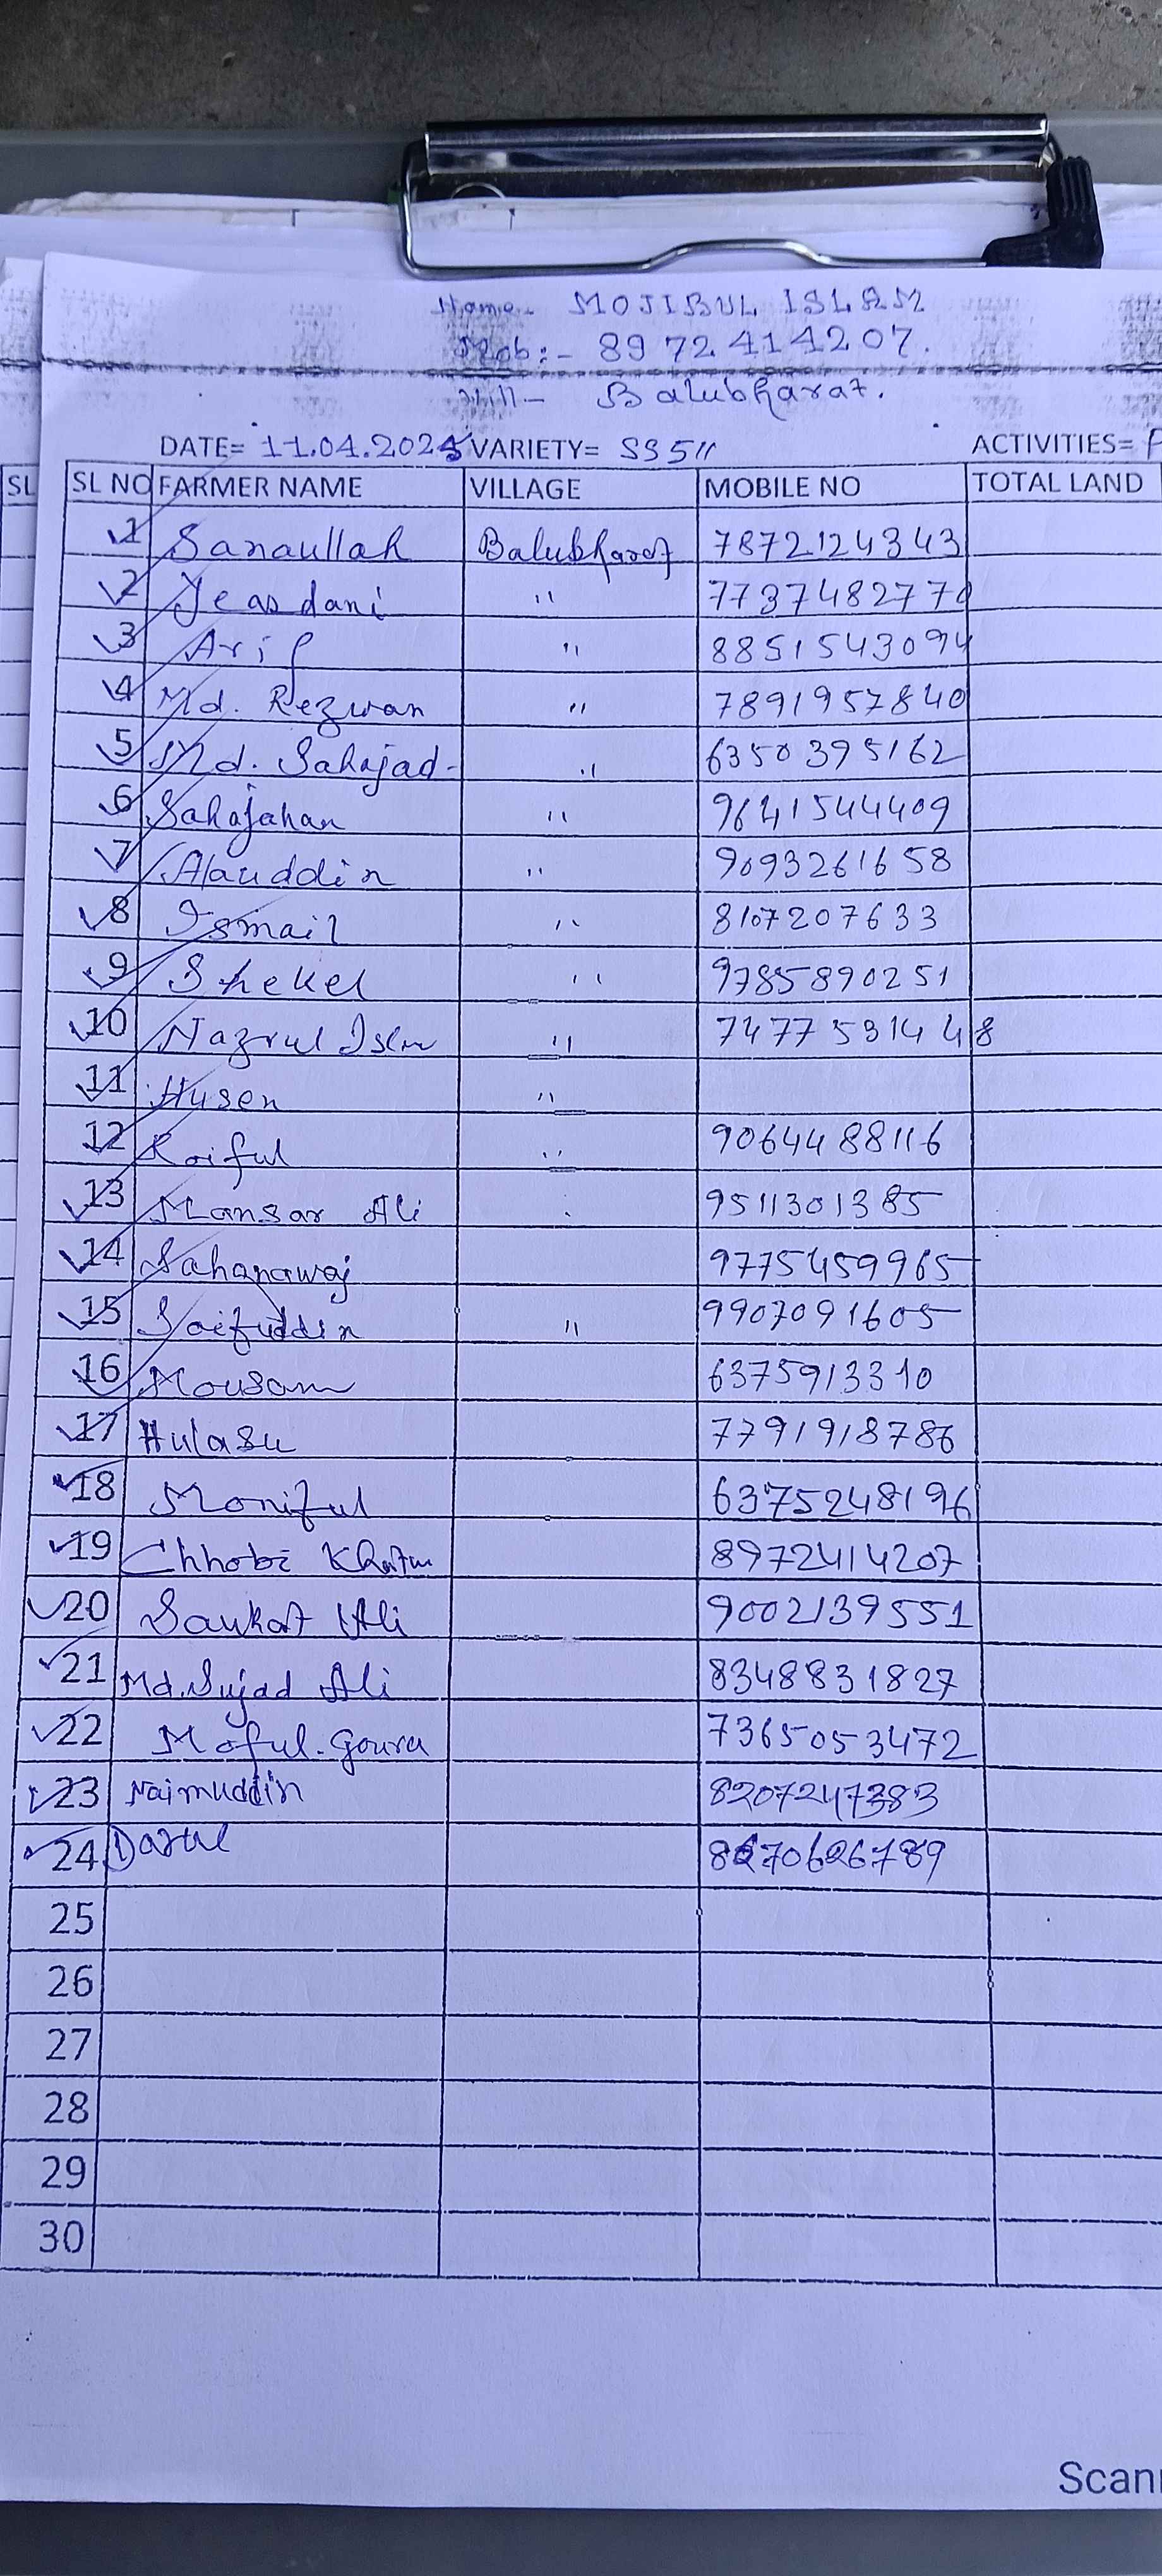 Name- MOJIBUL ISLAM
Mob:- 8972414207.
Vill- Balubharat.
DATE= 11.04.2025 VARIETY= SS511 ACTIVITIES=
SL SL NO FARMER NAME VILLAGE MOBILE NO TOTAL LAND
1 Sanaullah Balubharat 7872124343
2 Yeasdani " 7737482770
3 Arif " 8851543094
4 Md. Rezwan " 7891957840
5 Md. Sahajad- " 6350395162
6 Sahajahan " 9641544409
7 Alauddin " 9093261658
8 Ismail " 8107207633
9 Shekel " 9785890251
10 Nazrul Islm " 7477531448
11 Husen "
12 Roiful " 9064488116
13 Mansar Ali 9511301385
14 Sahanawaj 9775459965
15 Saifuddin " 9907091605
16 Mousam 6375913310
17 Hulasu 7791918786
18 Moniful 6375248196
19 Chhobi Khatun 8972414207
20 Saukat Ali 9002139551
21 Md.Sujad Ali 8348831827
22 Moful. Goura 7365053472
23 Naimuddin 8207247383
24 Darul
25
26
27
28
29
30